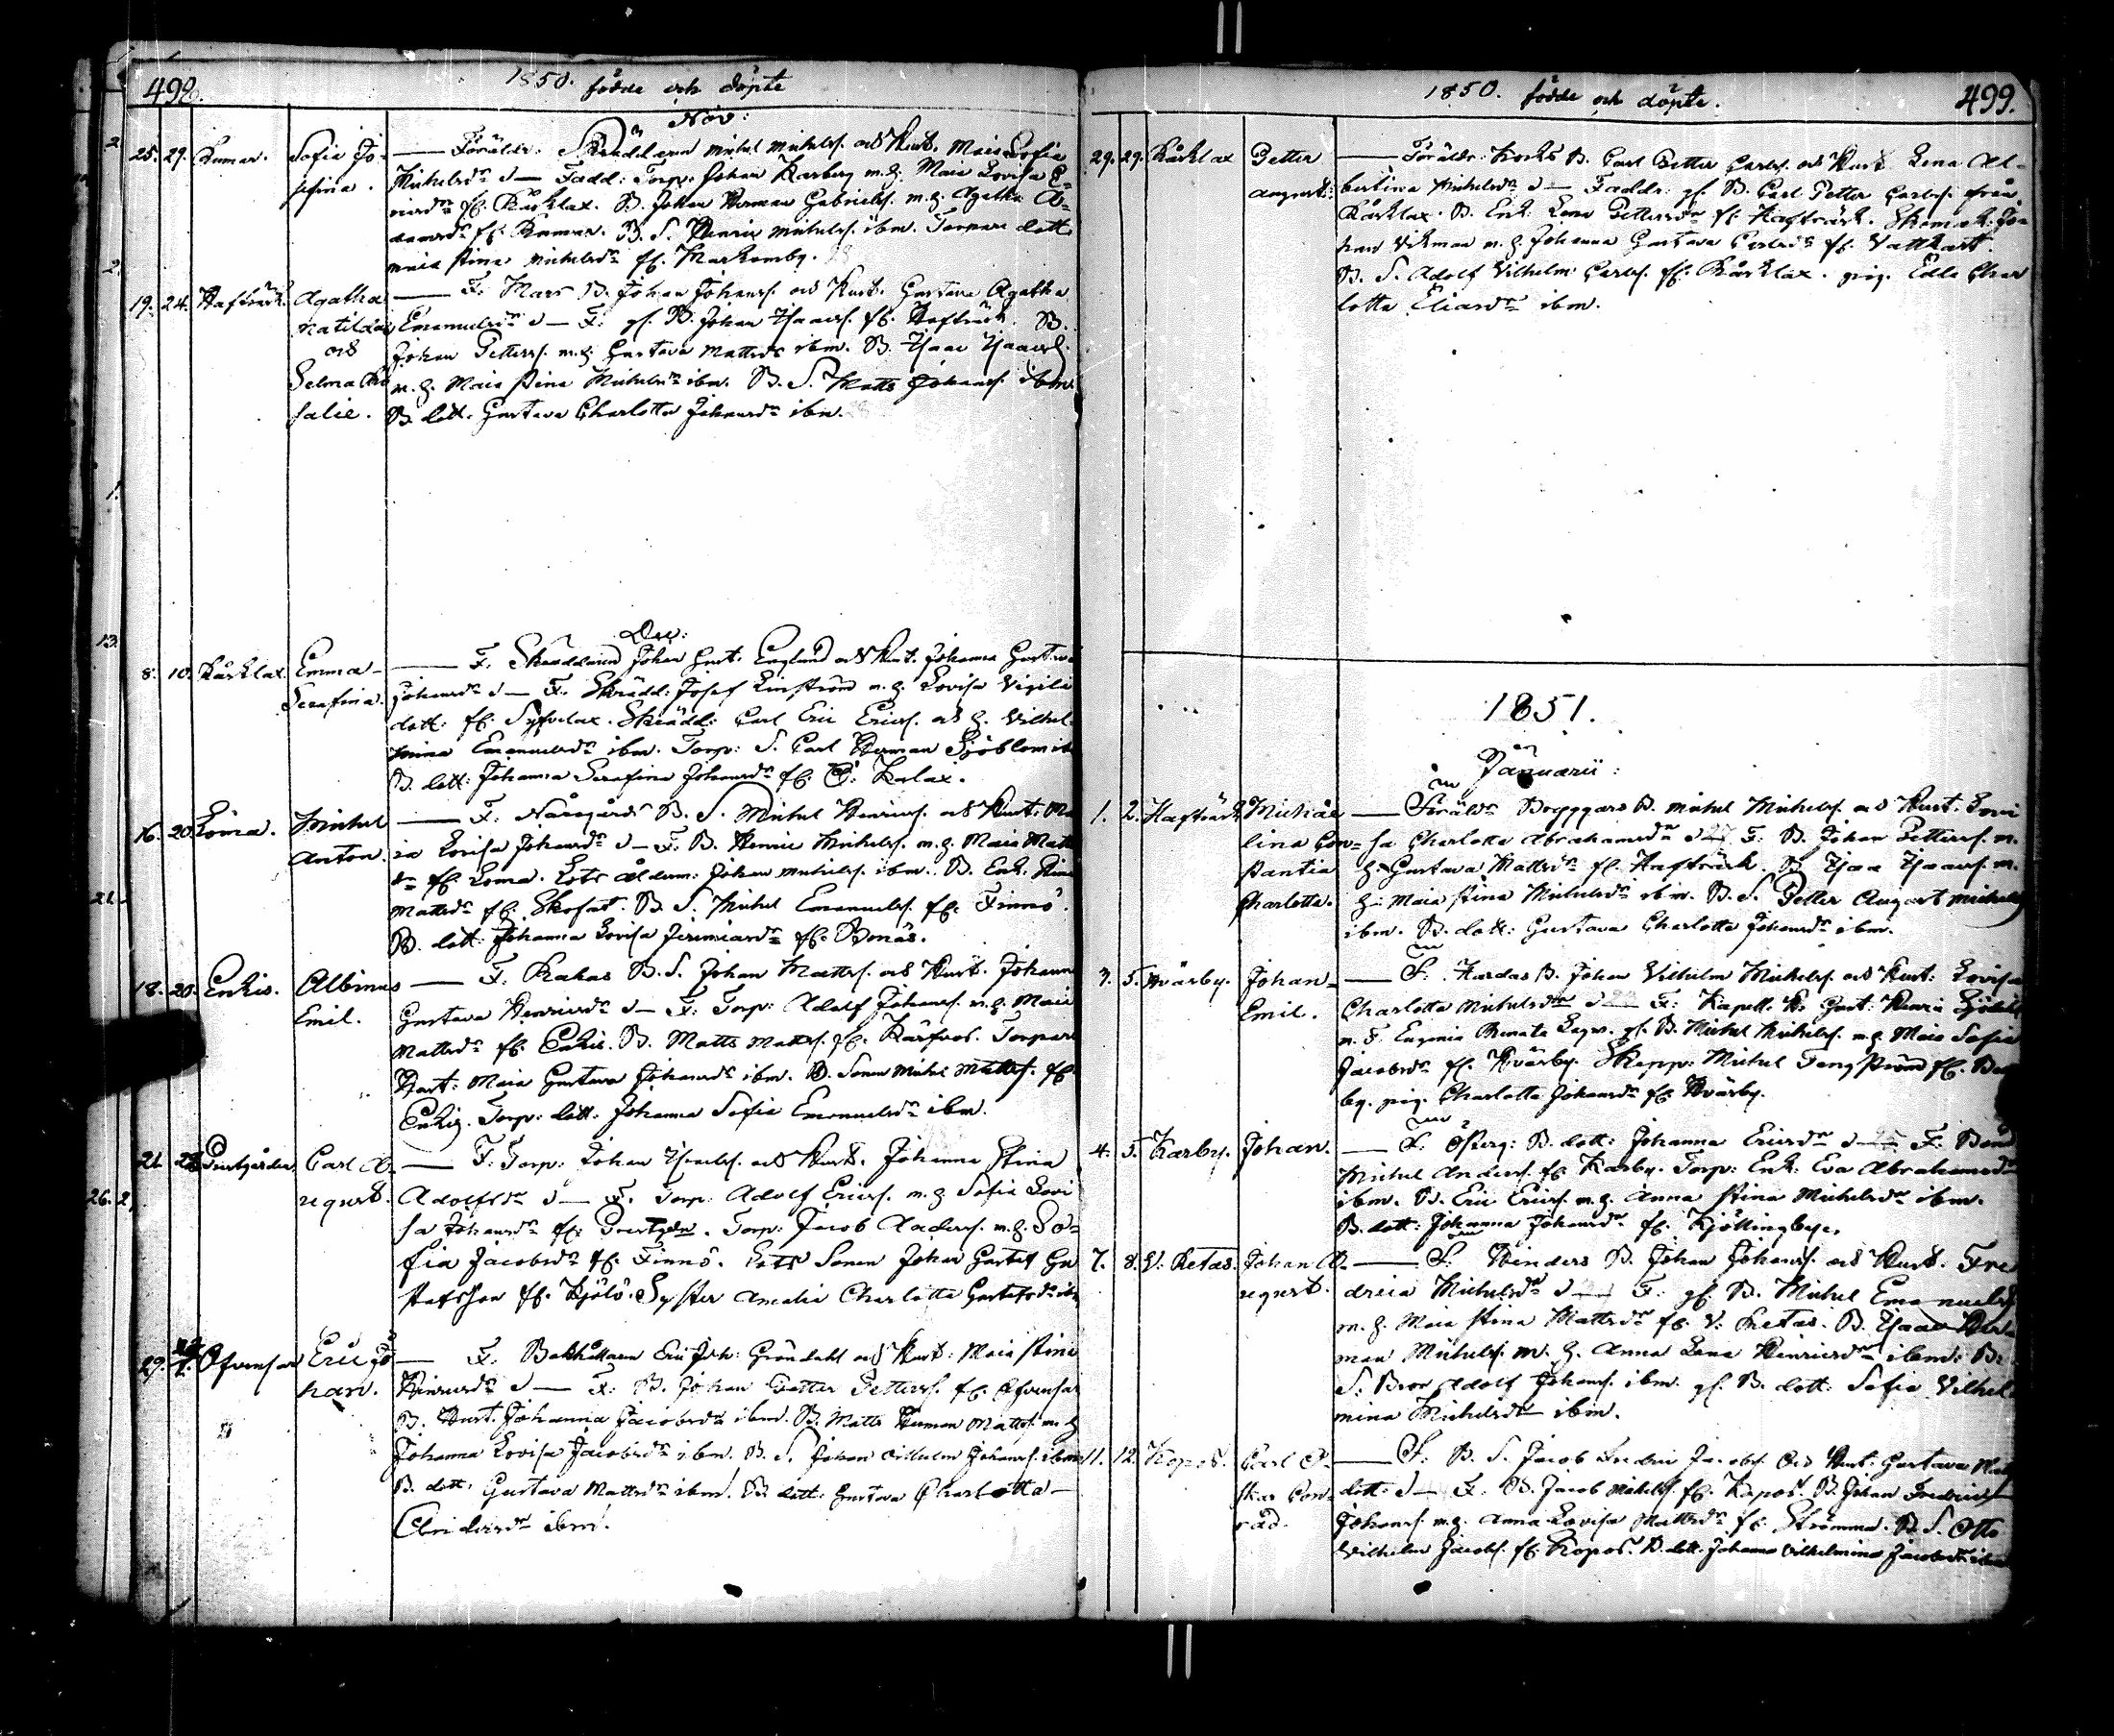 498.
1850. födde och döpte
Nov:
25. 29. Kumar. Sofia Jo- — Föräldr. Skräddaren Michel Michelss. och Hust. Maia Sofia
sefina. Michelsdr d— Fadd: Torp: Johan Karberg m. h. Maia Lovisa
fr. Kårklax. B. Johan Herman Gabrielss. m. h. Agatha
fr. Kumar. B. S. Henric Michelss. ibm. Torpare dott:
Maia Stina Michelsdr fr. Harkomby.
19. 24. Haftträsk. Agatha — F. Mars B. Johan Johanss. och Hust. Gustava Agatha
Matilda Emanuelsdr d— F: gl. B. Johan Isaacss. fr. Haftträsk. B.
och Johan Petterss. m. h. Gustava Mattsdr ibm. B. Isaac Isaacss.
Selma m. h. Maia Stina Michelsdr ibm. B. S. Matts Johanss. ibm.
salie. B. dott. Gustava Charlotta Johansdr ibm.
Dec:
8. 10. Kårklax. Emma — F. Skräddaren Johan Gust. Englund och Hust. Johanna Gustava
Serafina. Johansdr d— F. Skrädd: Josef Linström m. h. Lovisa
dott: fr. Syfvelax. Skrädd: Carl Eric Ericss. och h. Vilhel-
mina Emanuelsdr ibm. Torp: S. Carl Herman Sjöblom ibm
B. dott: Johanna Serafina Johansdr fr. Ö: Kalax.
16. 20. Loma. Michel — F. Nårgårds B. S. Michel Henricss. och Hust. Ma
Anton. ia Lovisa Johansdr d— F. B. Henric Michelss. m. h. Maia Matts
dr fr. Loma. Lots ålderm: Johan Michelss. ibm. B. Enk. Stina
Mattsdr fr. Skofat. B. S. Michel Emanuelss. fr. Finnö.
B. dott: Johanna Lovisa Jeremiasdr fr. Bonäs.
18. 20. Enkis. Albinus — F. Rakas B. S. Johan Mattss. och Hust. Johanna
Emil. Gustava Henricsdr d— F: Torp: Adolf Johanss. m. h. Maia
Mattsdr fr. Enkis. B. Matts Mattss. fr. Kärfvos. Torpare
Hust: Maia Gustava Johansdr ibm. B. Sonen Michel Mattss. fr.
Enkis. Torp: dott: Johanna Sofia Emanuelsdr ibm.
21. Prestgården Carl A- — F. Torp: Johan Israelss. och Hust. Johanna Stina
ugust. Adolfsdr d— F. Torp: Adolf Ericss. m. h. Sofia Lovi
sa Johansdr fr. Prestgdn. Torp: Jacob m. h. So-
fia Jacobsdr fr. Finnö. Lots Sonen Johan Gustaf Gu
stafsson fr. Kjölö. Syster Amalia Charlotta Gustafsdr ibm
29. Öfversar Eric Jo — F: Eric Joh: Gröndahl och Hust: Maia Stina
han. Henricsdr d— F: B. Johan Petter Petterss. fr. Öfversar
B. Hust. Johanna Jacobsdr ibm. B. Matts Herman Mattss. m. h
Johanna Lovisa Jacobsdr ibm. B. S. Johan Vilhelm Johanss. ibm
B. dott: Gustava Mattsdr ibm. B. dott: Gustava Charlotta
ibm.
1850. födde och döpte.
499.
29. 29. Kårklax Petter — Föräldr: Kocks B. Carl Petter Carlss. och Hust. Lena Al-
August: bertina Michelsdr d— Faddr: gl. B. Carl Petter Carlss. från
Kårklax. B. Enk: Lena Pettersdr fr. Haftträsk. Skomak. Jo-
han Vikman m. h. Johanna Gustava Carlsdr fr. Vattkast
B. S. Adolf Vilhelm Carlss. fr. Kårklax. pig. Edla Char
lotta Eliasdr ibm.
1851.
Januarii:
1. 2. Haftträsk Michae — Föräldr B. Michel Michelss. och Hust. Lovi
lina Con- sa Charlotta Abrahamsdr d— F: B. Johan Petterss. m.
stantia h. Gustava Mattsdr fr. Haftträsk. B. Isaac Isaacss. m.
Charlotta. h. Maia Stina Michelsdr ibm. B. S. Petter August Michelss
ibm. B. dott: Gustava Charlotta Johansdr ibm.
3. 5. Kvärby. Johan — F: Kardas B. Johan Vilhelm Michelss. och Hust: Lovisa
Emil. Charlotta Michelsdr d— F: Kapell. Gust: Henric
m. F. Eugenia Renata gl. B. Michel Michelss. m. h. Maia Sofia
Jacobsdr fr. Kvärby. Skepp: Michel Tengström fr.
by. pig. Charlotta Johansdr fr. Kvärby.
4. 5. Karby. Johan. — F. Österg: B. dott: Johanna Ericsdr d— F: Bond
Michel Anderss. fr. Karby. Torp: Enk: Eva Abrahamsdr
ibm. B. Eric Ericss. m. h. Anna Stina Michelsdr ibm.
B. dott: Johanna Johansdr fr. Kjöttingbye.
7. 8. V: Retas. Johan A- — F. Hinders B. Johan Johanss. och Hust. Fre
ugust. drica Michelsdr d— F: gl. B. Michel Emanuelss
m. h. Maia Stina Mattsdr fr. V. Retas. B. Isaac Her
man Michelss. m. h. Anna Lena Henricsdr ibm. B.
S: Bror Adolf Johanss. ibm. gl. B. dott: Sofia Vilhel
mina Michelsdr ibm.
11. 12. Kopos. Carl O- — F: B. S. Jacob Fredric Jacobss. och Hust: Gustava
skar Con- dott: d— F. B. Jacob Michelss. fr. Kopos. B. Johan Fredric
rad. Johanss. m. h. Anna Lovisa Mattsdr fr. Strömma. B. S. Otto
Vilhelm Jacobss. fr. Kopos. B. dott. Johanna Vilhelmina Jacobsdr ibm